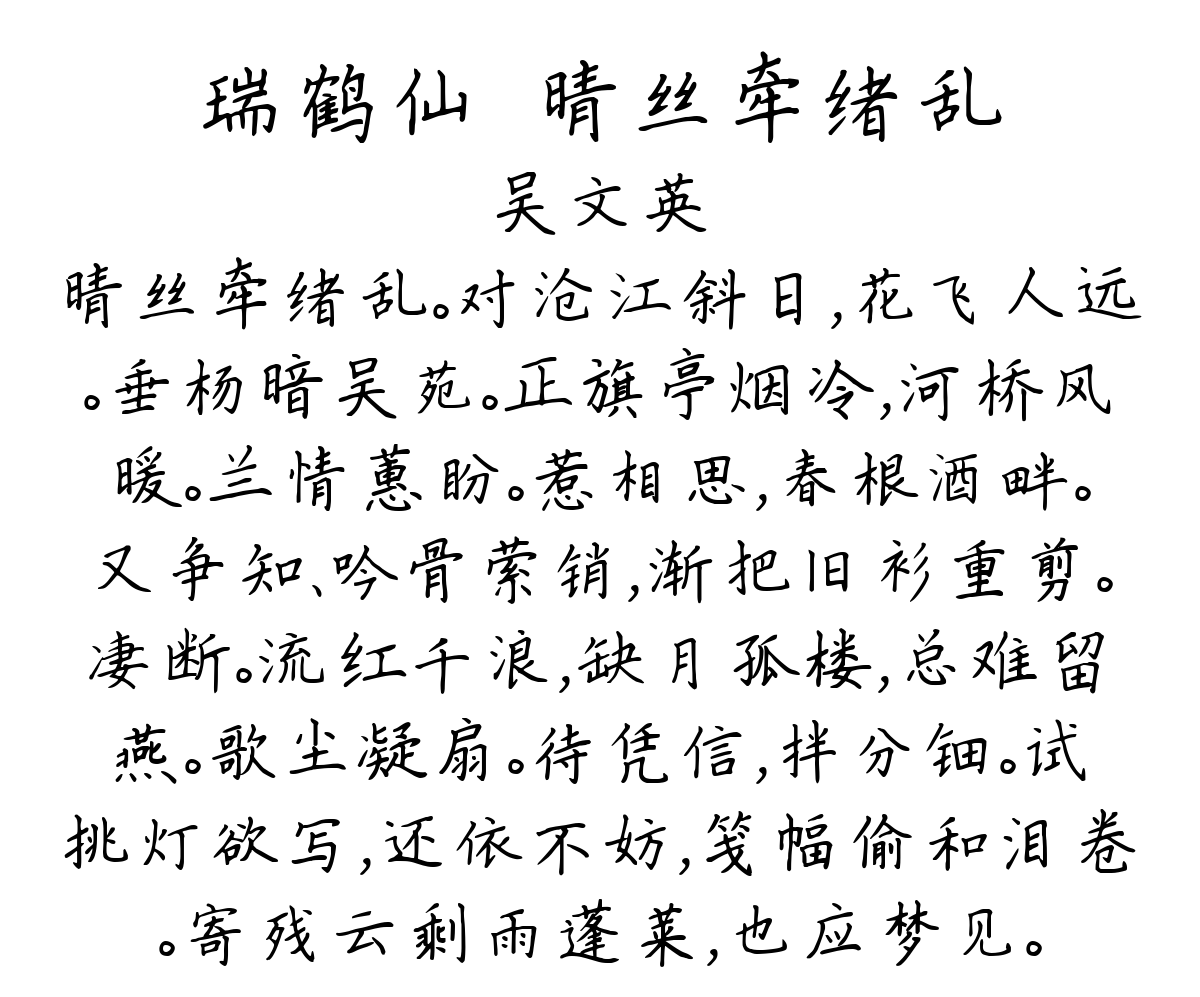 瑞鹤仙 晴丝牵绪乱
吴文英
晴丝牵绪乱。对沧江斜日,花飞人远
。垂杨暗吴苑。正旗亭烟冷,河桥风
暖。兰情蕙盼。惹相思,春根酒畔。
又争知、吟骨萦销,渐把旧衫重剪。
凄断。流红千浪,缺月孤楼,总难留
燕。歌尘凝扇。待凭信,拌分钿。试
挑灯欲写,还依不妨,笺幅偷和泪卷
。寄残云剩雨蓬莱,也应梦见。